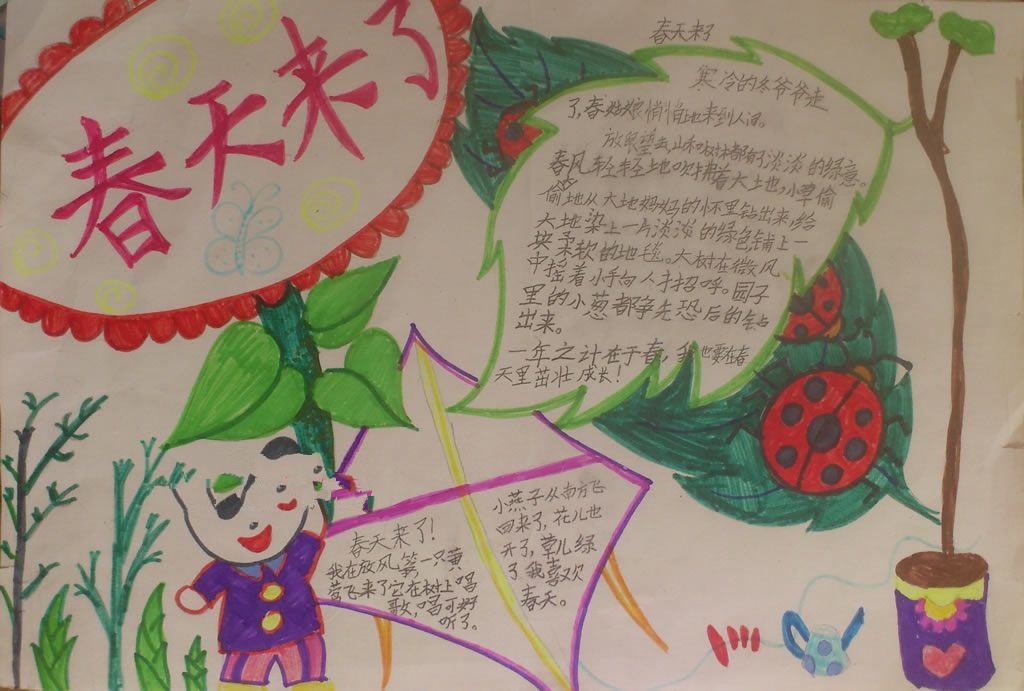 春天来了
春天来了
寒冷的冬爷爷走
了,春姑娘悄悄地来到人间。
放眼望去山和树林都有了淡淡的绿意。
春风轻轻地吹拂着大土地,小草偷
偷地从大地妈妈的怀里钻出来,给
大地染上一片淡淡的绿色铺上一
块柔软的地毯。大树在微风
中摇着小手向人们招呼。园子
里的小葱都争先恐后的钻
出来。
一年之计在于春,我也要在春
天里茁壮成长!
春天来了!
我在放风筝,一只黄
莺飞来了它在树上唱
歌,唱可好
听了。
小燕子从南方飞
回来了,花儿也
开了,草儿绿
了我喜欢
春天。